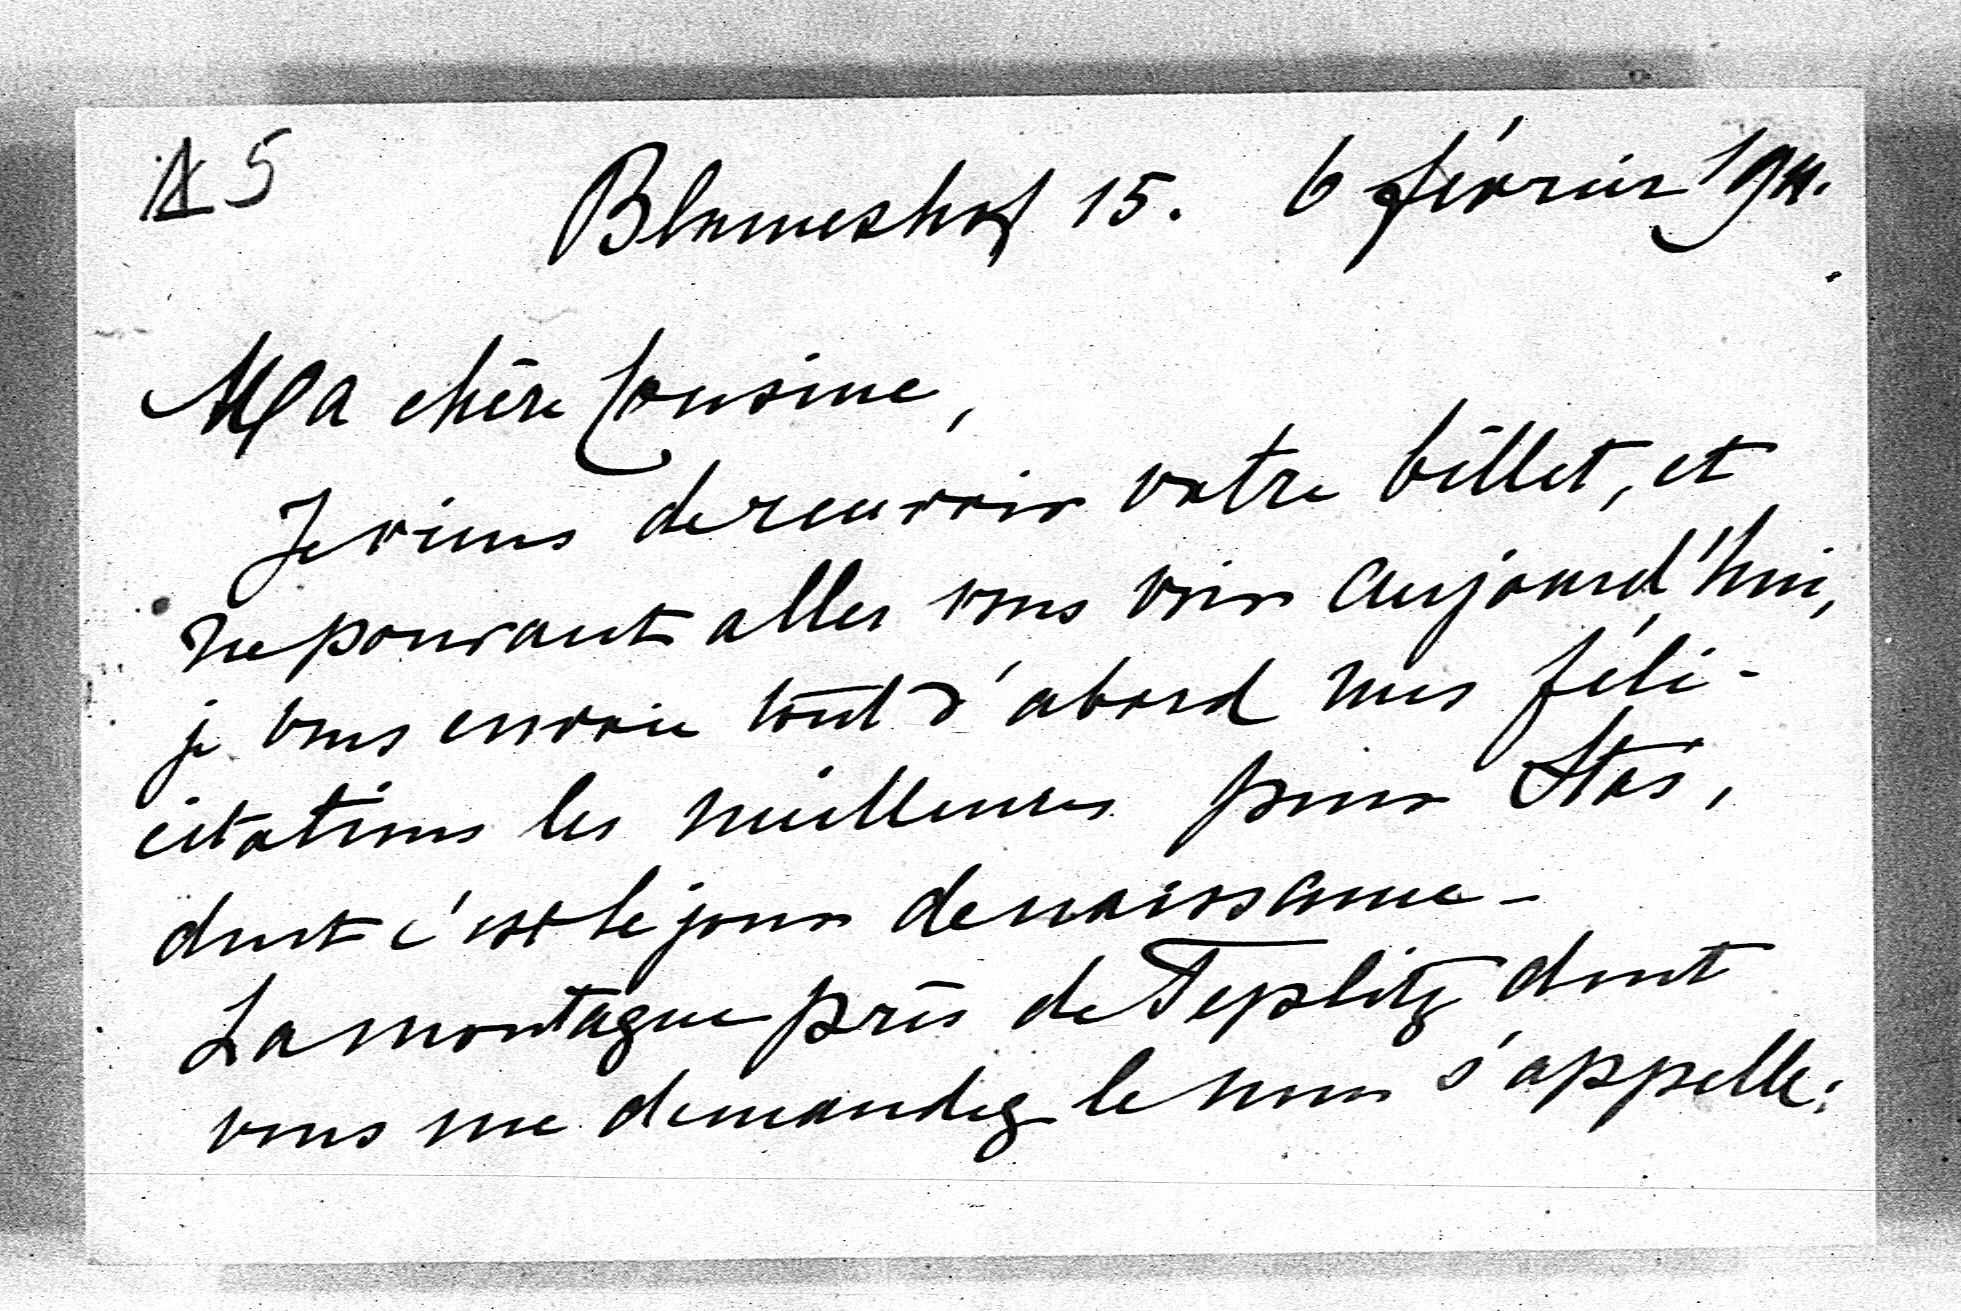 5
Blumeshof 15. 6 février 1911.
Ma chère Cousine,
Je viens de recevoir votre billet, et
ne pouvant aller vous voir aujourd'hui,
je vous envoie tout d'abord mes féli-
citations les meilleures pour Stas,
dont c'est le jour de naissance -
La montagne près de Teplitz dont
vous me demandez le nom s'appelle: